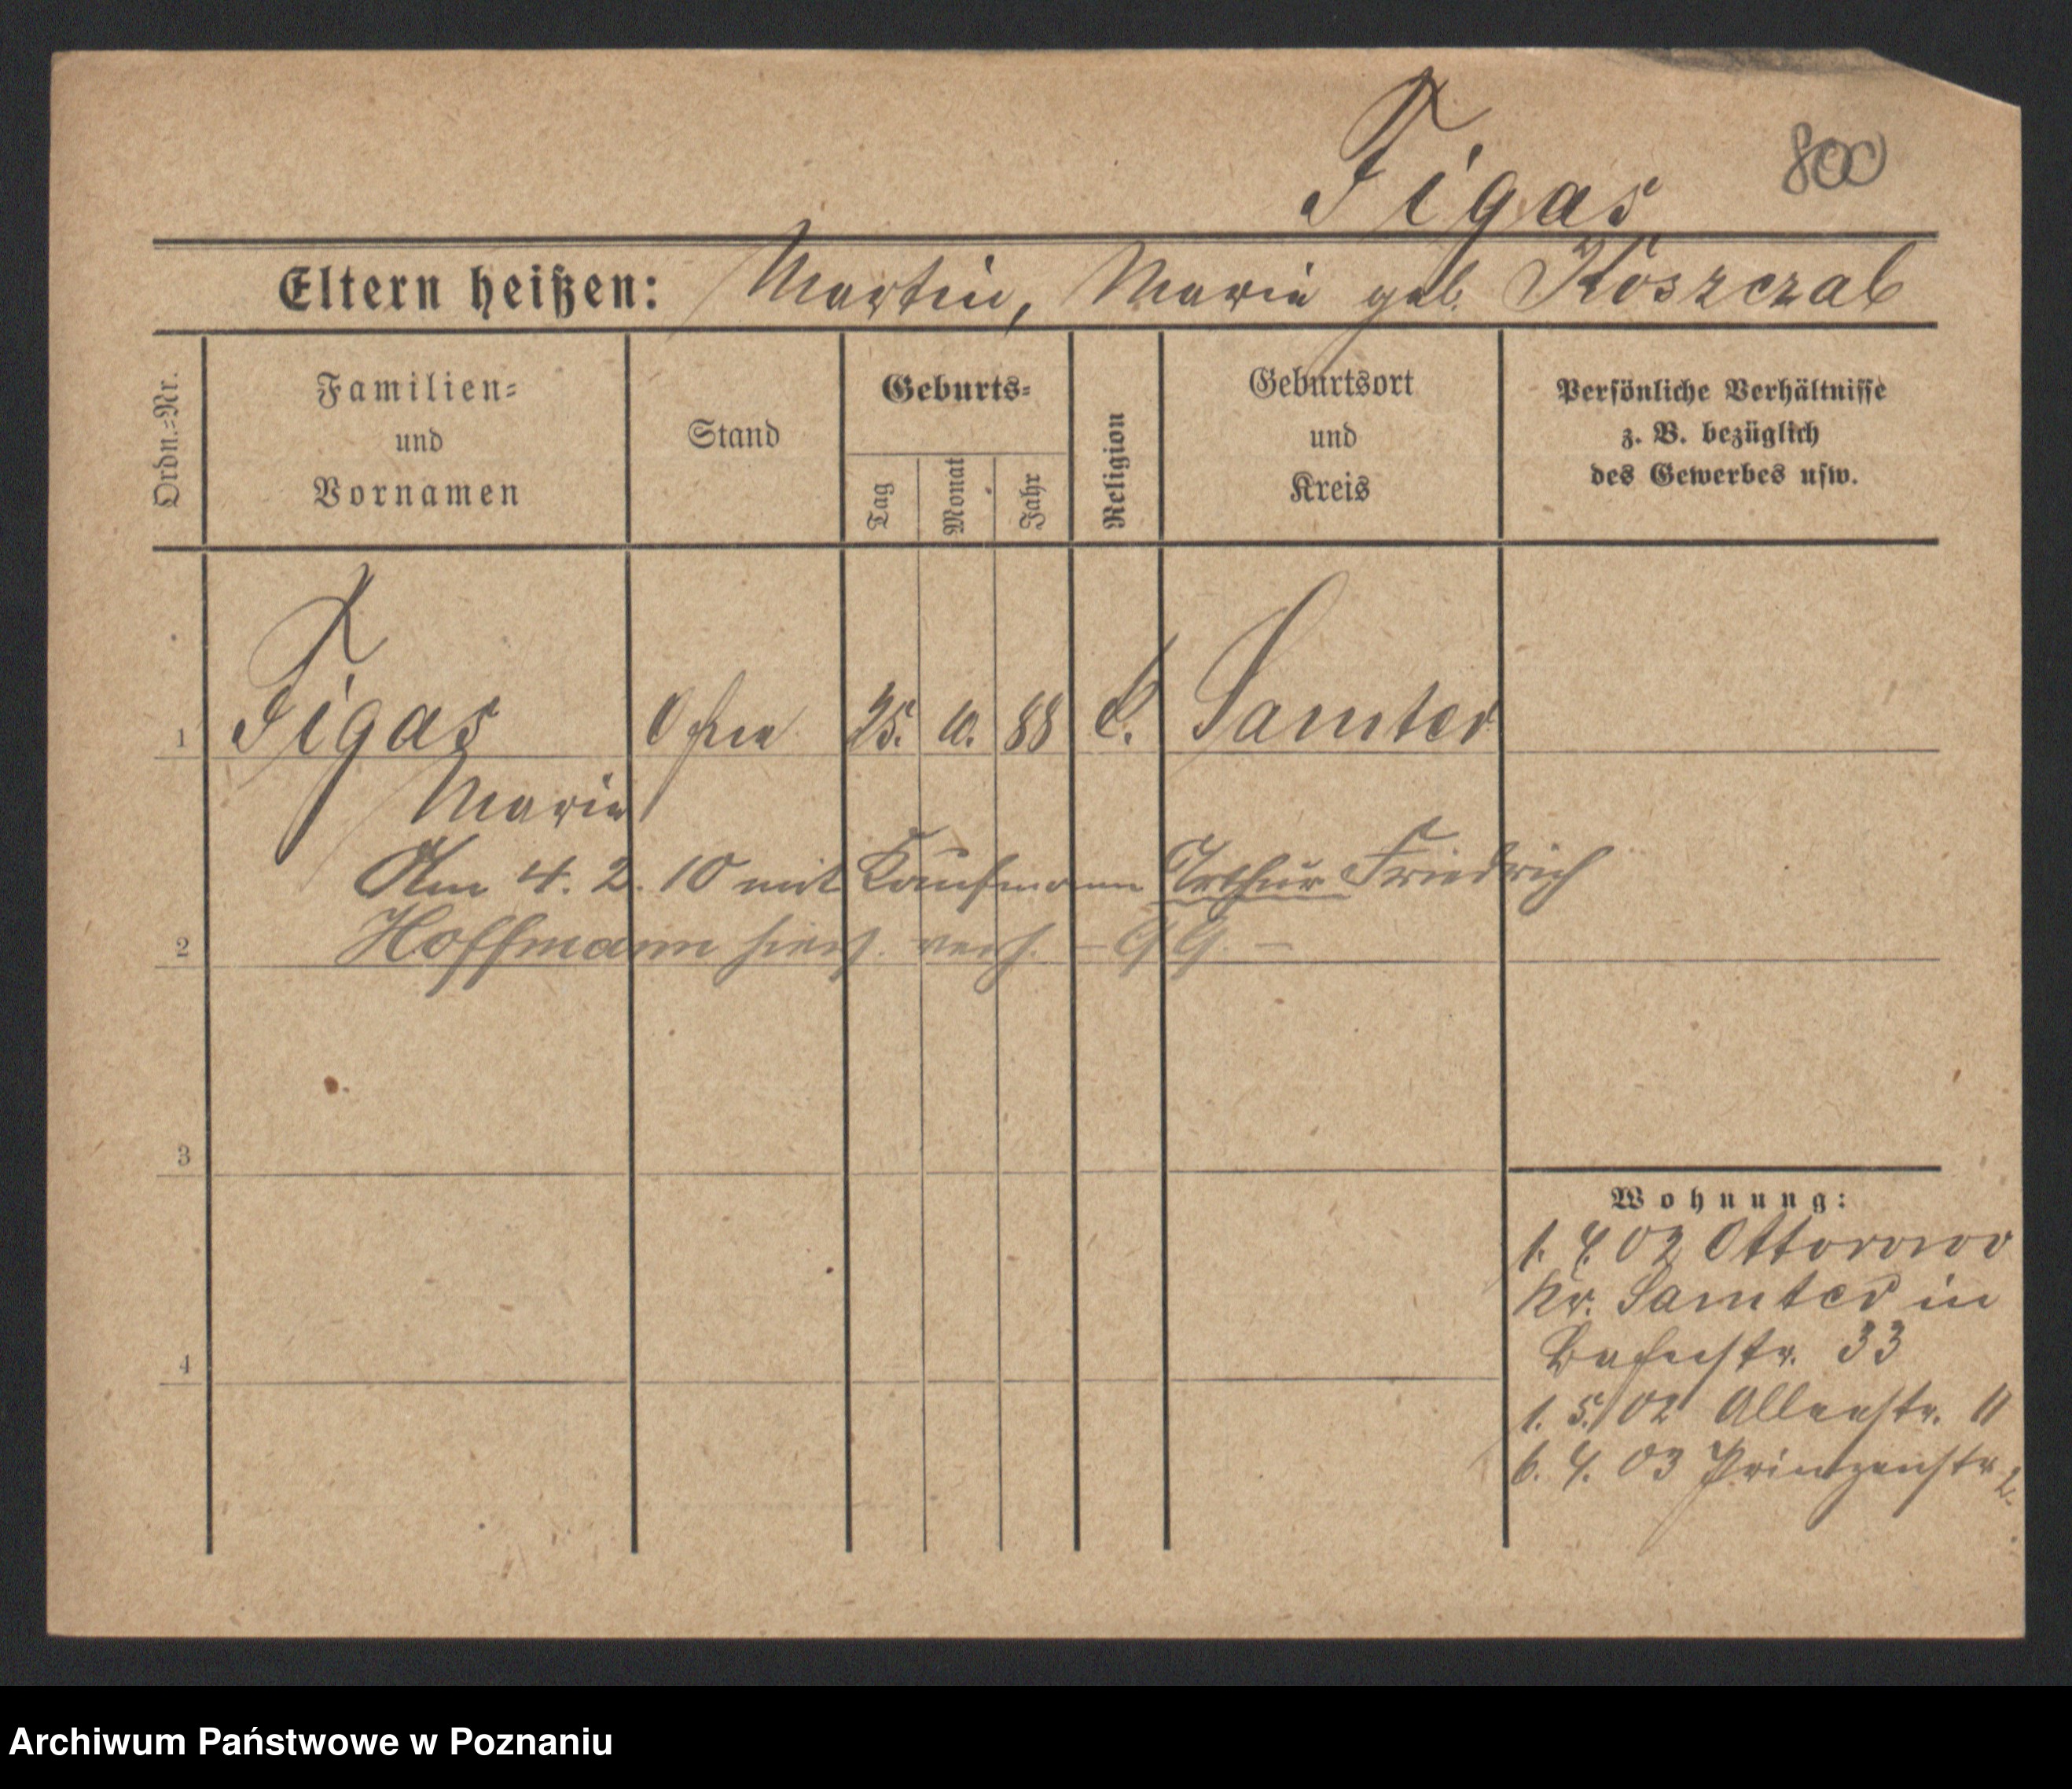 Figas 800
Eltern heißen: Martin, Marie geb. Koszczab
Ordn.=Nr.
Familien=
und
Vornamen
Stand
Geburts=
Tag
Monat
Jahr
Religion
Geburtsort
und
Kreis
Persönliche Verhältnisse
z. B. bezüglich
des Gewerbes usw.
1 Figas Ohne 25. 10. 88 k. Samter
Marie
Am 4. 2. 10 mit Kaufmann Arthur Friedrich
2 Hoffmann hiers. verh.
3
4
Wohnung:
1. 4. 02 Ottorowo
Kr. Samter in
Bahnstr. 33
1. 5. 02 Alleestr. 11
6. 4. 03 Prinzenstr. 2
Archiwum Państwowe w Poznaniu